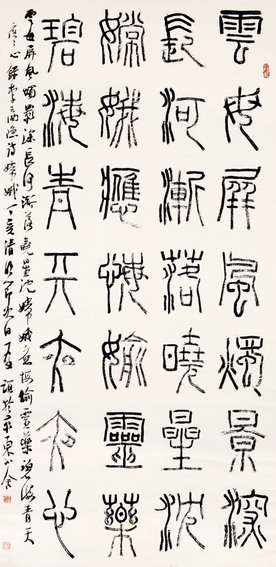 雲母屏風燭景深
長河漸落曉星沈
嫦娥應悔媮靈藥
碧海青天夜夜心
雲母屏風燭景深長河漸落曉星沈嫦娥應悔偷靈藥碧海青天
夜夜心 錄李商隱詩嫦娥 丁亥清明節